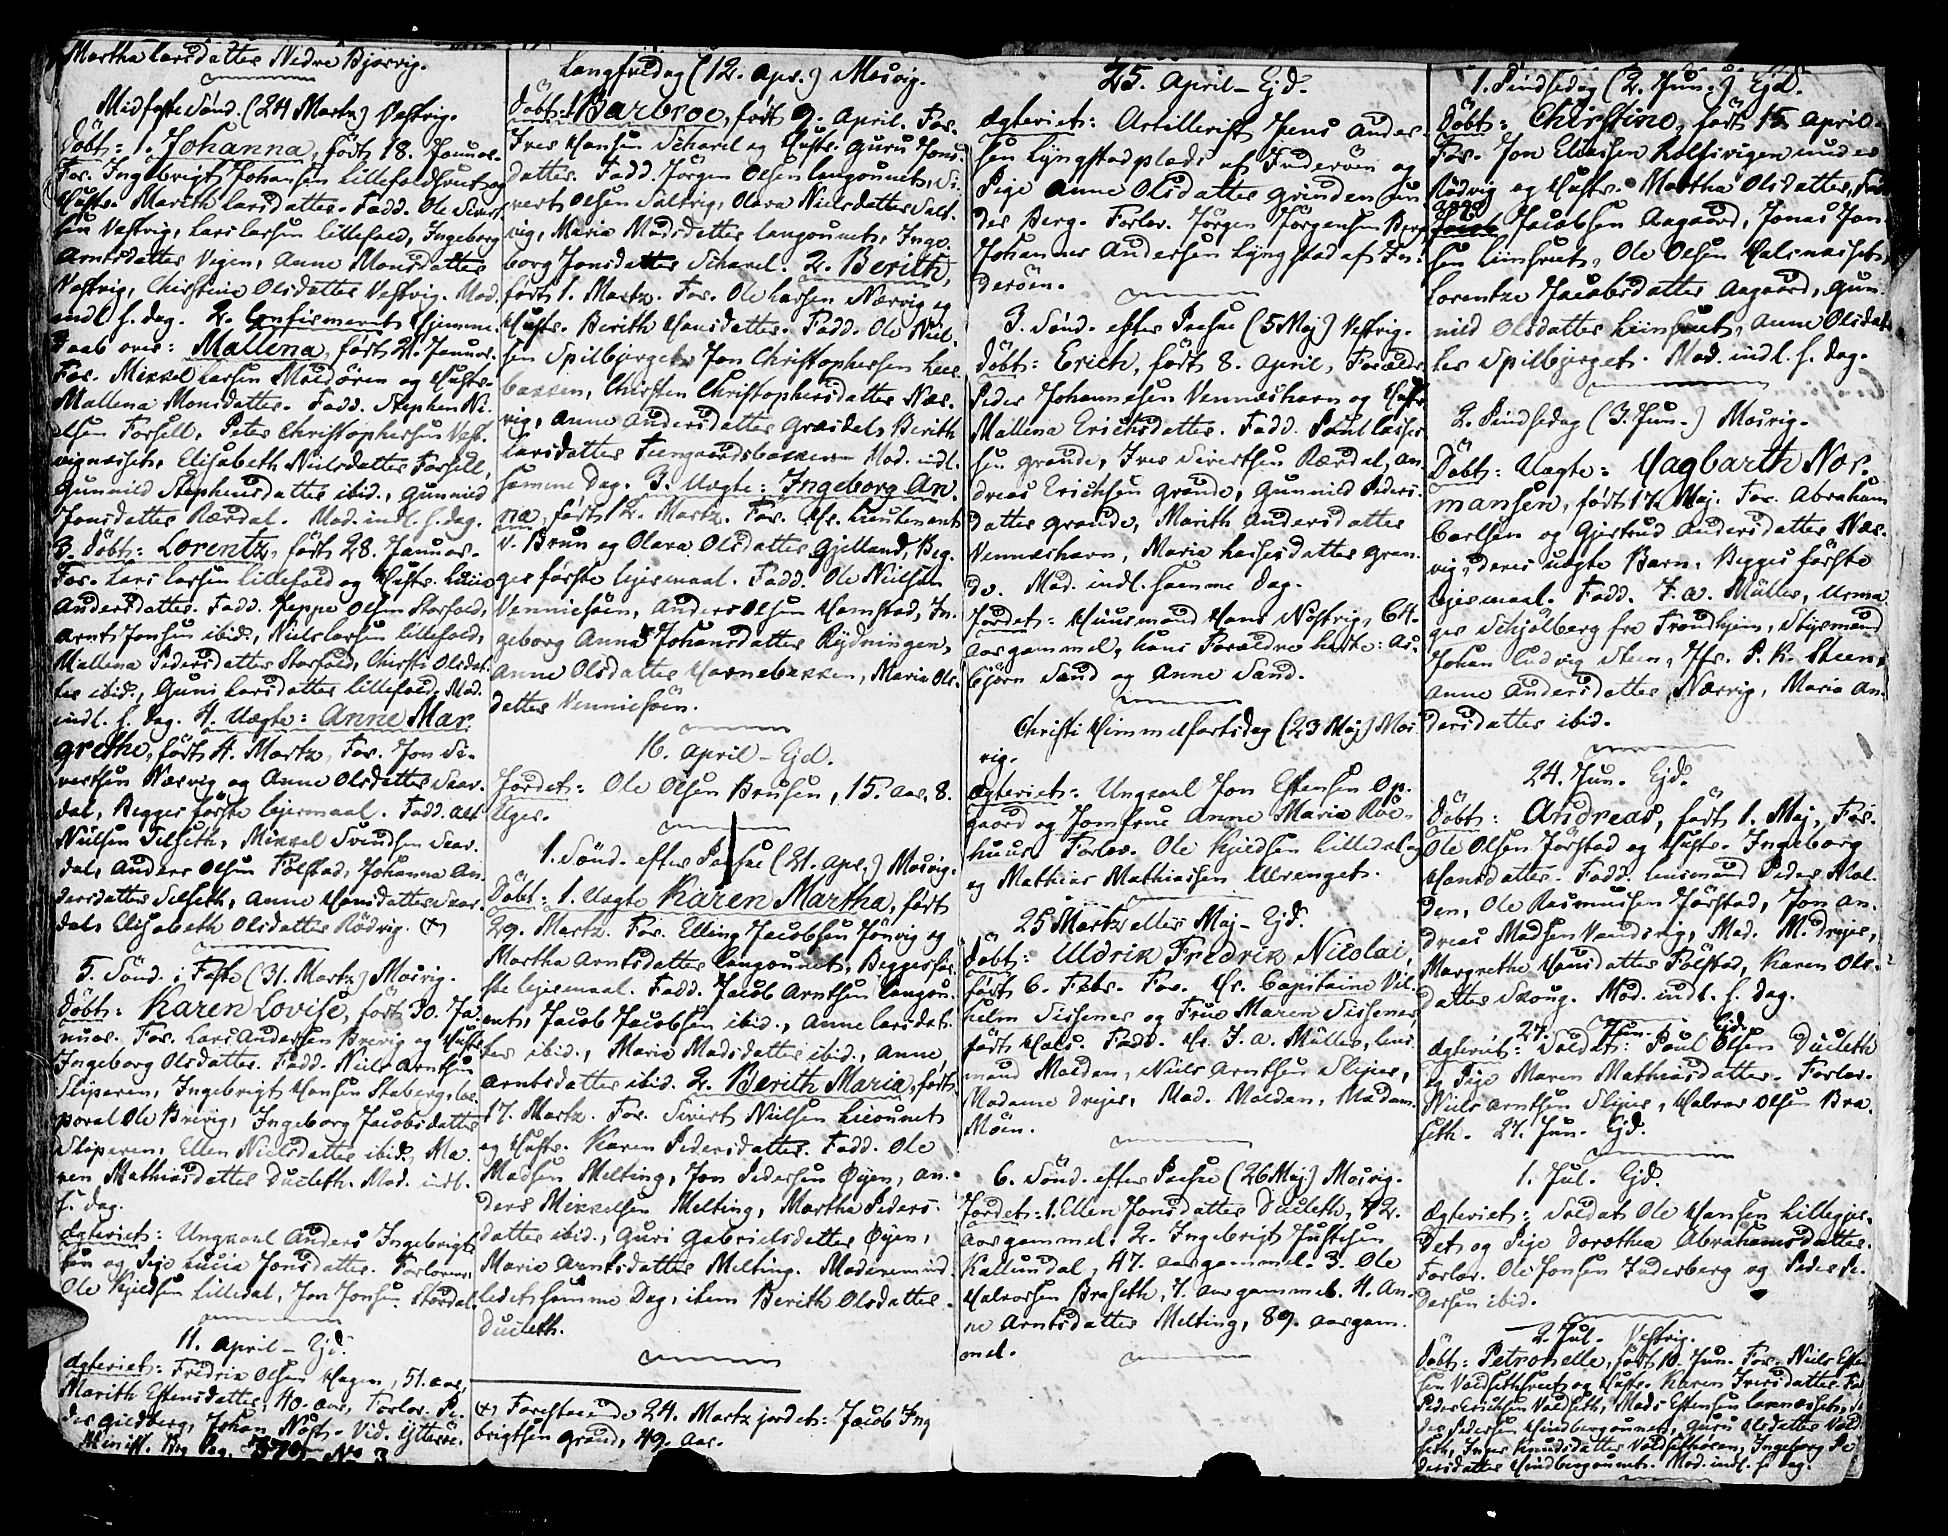 Martha Larsdatter Nedre Bjørvig.
Midfaste Sönd. (24 Martz) Vestvig.
Döbt: 1. Johanna, födt 18. Januar.
For. Ingebrigt Johansen Lillefoldhvet og
Hustr. Marith Larsdatter. Fadd. Ole Sivert
sen Vestvig, Lars Larsen Lillefold, Ingeborg
Arntsdatter Vigen, Anne Monsdatter
Vestvig, Christina Olsdatter Vestvig. Mod.
indl. s. dag. 2. Confirmeret Hjemme-
daab over: Mallena, födt 21. Januar.
For. Mikkel Larsen Moldören og Hustr.
Mallena Monsdatter. Fadd. Stephen Ni-
elsen Forsell, Peter Christophersen Vest-
vignesset, Elisabeth Nielsdatter Forsell,
Gunnild Stephensdatter ibid., Gunnild
Jonsdatter Rærdal. Mod. indl. s. dag.
3. Döbt: Lorentz, födt 28. Januar.
For. Lars Larsen Lillefold og Hustr. Lucia
Andersdatter. Fadd. Jeppe Olsen Storfold,
Arnt Jonsen ibid., Niels Larsen Lillefold,
Mallena Pedersdatter Storfold, Chirsti Olsdat-
ter ibid., Guni Larsdatter Lillefold, Mod.
indl. s. dag. 4. Uægte: Anne Mar
grethe, födt 4. Martz. For. Jon Si-
vertsen Næsvig og Anne Olsdatter Skar-
dal, Begges förste lejermaal. Fadd. Alt
Nielsen Selseth, Mikkel Svendsen Skar-
dal, Anders Olsen Fölstad, Johanna An-
dersdatter Selseth, Anne Hansdatter Skar-
dal, Elisabeth Olsdatter Rödvig. (x)
5. Sönd. i Faste (31. Martz) Mosvig.
Döbt: Karen Lovise, födt 30. Ja-
nuar. For. Lars Andersen Brevig og Hustr.
Ingeborg Olsdatter. Fadd. Niels Arntsen
Sliperen, Ingebrigt Hansen Staberg, Cor-
poral Ole Brevig, Ingeborg Jacobsdatter
Sliperen, Ellen Nielsdatter ibid., Ma-
ren Mathiasdatter Ducleth. Mod. indl.
s. dag.
Ægteviet: Ungkarl Anders Ingebrigt-
sen og Pige Lucia Jonsdatter. Forlovere
Ole Kjeldsen Lilledal, Jon Jonsen Stordal.
11. April – Ejd.
Ægteviet: Fredrik Olsen Hagen, 51. aar,
Marith Estensdatter, 40. aar, Forlov. Pe-
der Gjedberg, Johan Nöst. Vid. Ytteröe
Minist. Prot. Pag. 370 No 3
Langfredag (12. Apr.) Mosvig.
Döbt: 1. Barbroe, födt 9. April. For.
Iver Hansen Scharel og Hustr. Guru Jons-
datter. Fadd. Jörgen Olsen Langounet, Si-
vert Olsen Saltvig, Olava Nielsdatter Salt-
vig, Maria Madsdatter Langounet, Inge-
borg Jonsdatter Scharel. 2. Berith,
födt 1. Martz. For. Ole Larsen Næsvig og
Hustr. Berith Hansdatter. Fadd. Ole Niel-
sen Spilbjerget, Jon Christophersen Leer-
bakken, Chirsten Christophersdatter Næs-
vig, Anne Andersdatter Græsdal, Berith
Larsdatter Fiengaardsbakken. Mod. indl.
samme Dag. 3. Uægte: Ingeborg An-
na, födt 12. Martz. For. Hr. Lieutenant
v. Brun og Olava Olsdatter Gjelland, Beg-
ges förste lejermaal. Fadd. Ole Nielsen
Venniesöen, Anders Olsen Hamstad, In-
geborg Anna Johansdatter Rydningen,
Anne Olsdatter Hornebakken, Maria Ols-
datter Venniesöen.
16. April – Ejd.
Jordet: Ole Olsen Brusen, 15. aar, 8.
Uger.
1. Sönd. efter Paaske (21. Apr.) Mosvig.
Döbt: 1. Uægte Karen Martha, födt
29. Martz. For. Elling Jacobsen Jönvig og
Martha Arntsdatter Langounet, Begges för-
ste lejermaal. Fadd. Jacob Arntsen Langou-
net, Jacob Jacobsen ibid., Anne Larsdat-
ter ibid., Maria Madsdatter ibid., Anne
Arntsdatter ibid. 2. Berith Maria, födt
17. Martz. For. Sivert Nielsen Lieounet
og Hustr. Karen Pedersdatter. Fadd. Ole
Madsen Melting, Jon Pedersen Øyen, An-
ders Mikkelsen Melting, Martha Peders-
datter ibid., Guri Gabrielsdatter Øyen,
Maria Arntsdatter Melting. Moderen ind-
ledet samme Dag, item Berith Olsdatter
Ducleth.
(x) Forestaaende 24. Martz jordet: Jacob Ing
brigtsen Grand, 49. aar.
25. April – Ejd.
Ægteviet: Artillerist Jens Ander-
sen Lyngstadplads af Inderöen og
Pige Anne Olsdatter Grinden un-
der Berg. Forlov. Jörgen Jörgensen Berg,
Johannes Andersen Lyngstad af In-
deröen.
3. Sönd. efter Paaske (5 Maj) Vestvig.
Döbt: Erich, födt 8. April, Forældr.
Peder Johannesen Venneshavn og Hustr.
Mallena Erichsdatter. Fadd. Poul Lasse-
sen Grande, Iver Sivertsen Rærdal, An-
dreas Erichsen Grande, Gunnild Peders-
datter Grande, Marith Andersdatter
Venneshavn, Maria Lassesdatter Gran-
de. Mod. indl. samme Dag.
Jordet: Huusmand Hans Nöstvig, 64.
aar gammel, hans Forældre heete: As-
björn Sand og Anne Sand.
Christi Himmelfartsdag (23 Maj) Mos-
vig.
Ægteviet: Ungkarl Jon Estensen Op-
gaard og Jomfrue Anne Maria Roe-
huus. Forlov. Ole Kjeldsen Lilledal
og Mathias Mathiassen Ulrenget.
25 Martz eller Maj – Ejd.
Döbt: Uldrik Fredrik Nicolai,
födt 6. Febr. For. Hr. Capitaine Vil-
helm Sissener og Frue Maren Sissener,
födt Hals. Fadd. Hr. J. A. Müller, Lens-
mand Moldan, Niels Arntsen Sliper,
Madame Drejer, Mad. Moldan, Madam.
Möen.
6. Sönd. efter Paaske (26 Maj) Mosvig.
Jordet: 1. Ellen Jonsdatter Ducleth, 72.
aar gammel. 2. Ingebrigt Justsen
Kallundal, 47. aar gammel. 3. Ole
Halvorsen Braseth, 7. aar gammel. 4. An-
ne Arntsdatter Melting, 89. aar gam-
mel.
1. Pindsedag (2. Jun.) Ejd.
Döbt: Christine, födt 15. April.
For. Jon Eliassen Kolsvigen under
Rödvig og Hustr. Martha Olsdatter, Fad
Jacobsen Aagaard, Jonas Jon-
sen Liinsvet, Ole Olsen Halsnæsset,
Lorentze Jacobsdatter Aagaard, Gun-
nild Olsdatter Liinsvet, Anne Olsdat-
ter Spilbjerget. Mod. indl. s. dag.
2. Pindsedag (3. Jun.) Mosvig.
Döbt: Uægte: Hagbarth Nor-
mansen, födt 17. Maj. For. Abraham
Carlsen og Gjertrud Andersdatter Næs-
vig, deres uægte Barn, Begges förste
lejermaal. Fadd. J. A. Müller, Urma
ger Schjölberg fra Trondhjem, Styrmand
Johan Ludvig Steen, Jfr. P. K. Steen,
Anne Andersdatter Næsvig, Maria An-
dersdatter ibid.
24. Jun. Ejd.
Döbt: Andreas, födt 1. Maj, For.
Ole Olsen Jörstad og Hustr. Ingeborg
Hansdatter. Fadd. Lensmand Peder Mol-
den, Ole Rasmussen Jörstad, Jon An-
dreas Madsen Vandvig, Mad. M. Drejer,
Margrethe Hansdatter Fölstad, Karen Ols-
datter Skoug. Mod. indl. s. dag.
27. Jun. Ejd.
Ægteviet: Soldat Poul Olsen Ducleth
og Pige Maren Mathiasdatter. Forlov.
Niels Arntsen Sliper, Halvor Olsen Bra-
seth. 27. Jun. Ejd.
1. Jul. Ejd.
Ægteviet: Soldat Ole Hansen Lillegjer-
det og Pige Dorothea Abrahamsdatter.
Forlov. Ole Jonsen Inderberg og Peder Pe-
dersen ibid.
2. Jul. Vestvig.
Döbt: Petronelle, födt 10. Jun. For. Niels Esten
sen Voldsethsvet og Hustr. Karen Iversdatter. Fad
Peder Erichsen Voldseth, Mads Estensen Larnæsset,
der Pedersen Hindbergounet, Guru Olsdatter Vold-
seth, Inger Knudsdatter Voldsethaasen, Ingeborg Pe
dersdatter Hindbergounet. Mod. indl. s. dag.